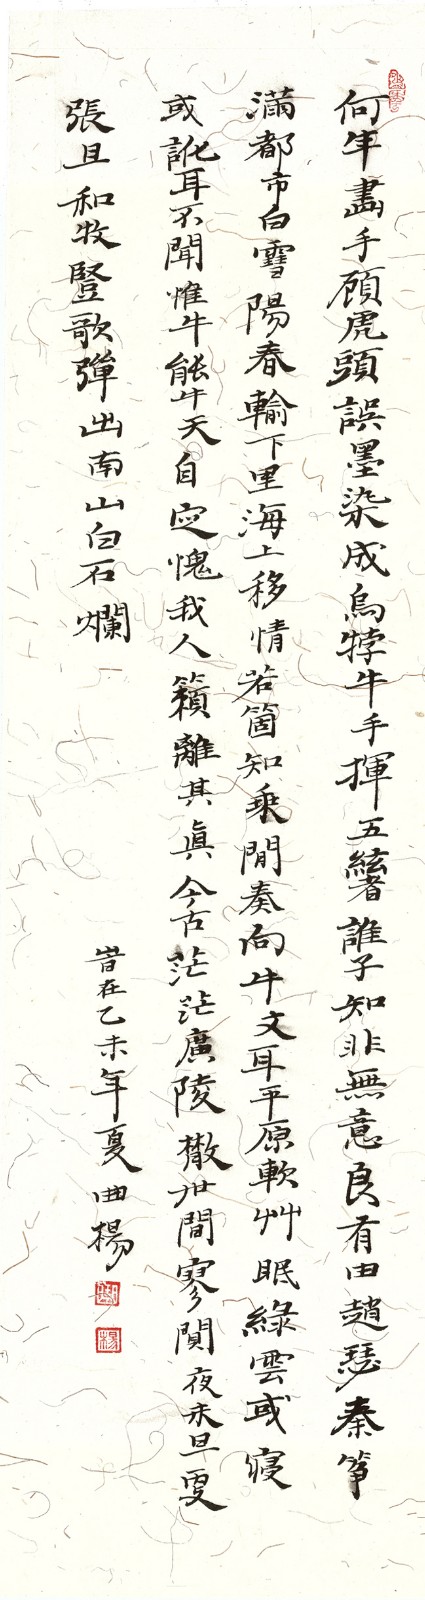 何年畫手顧虎頭誤墨染成烏牸牛手揮五絃者誰子知非無意良有由趙瑟秦箏
滿都市白雪陽春輸下里海上移情若箇知乘閒奏向牛文耳平原軟艸眠綠雲或寢
或訛耳不聞惟牛能牛天自定愧我人籟離其真今古茫茫廣陵散世間寥闃夜未旦更
張且和牧豎歌彈出南山白石爛
昔在乙未年夏曲楊